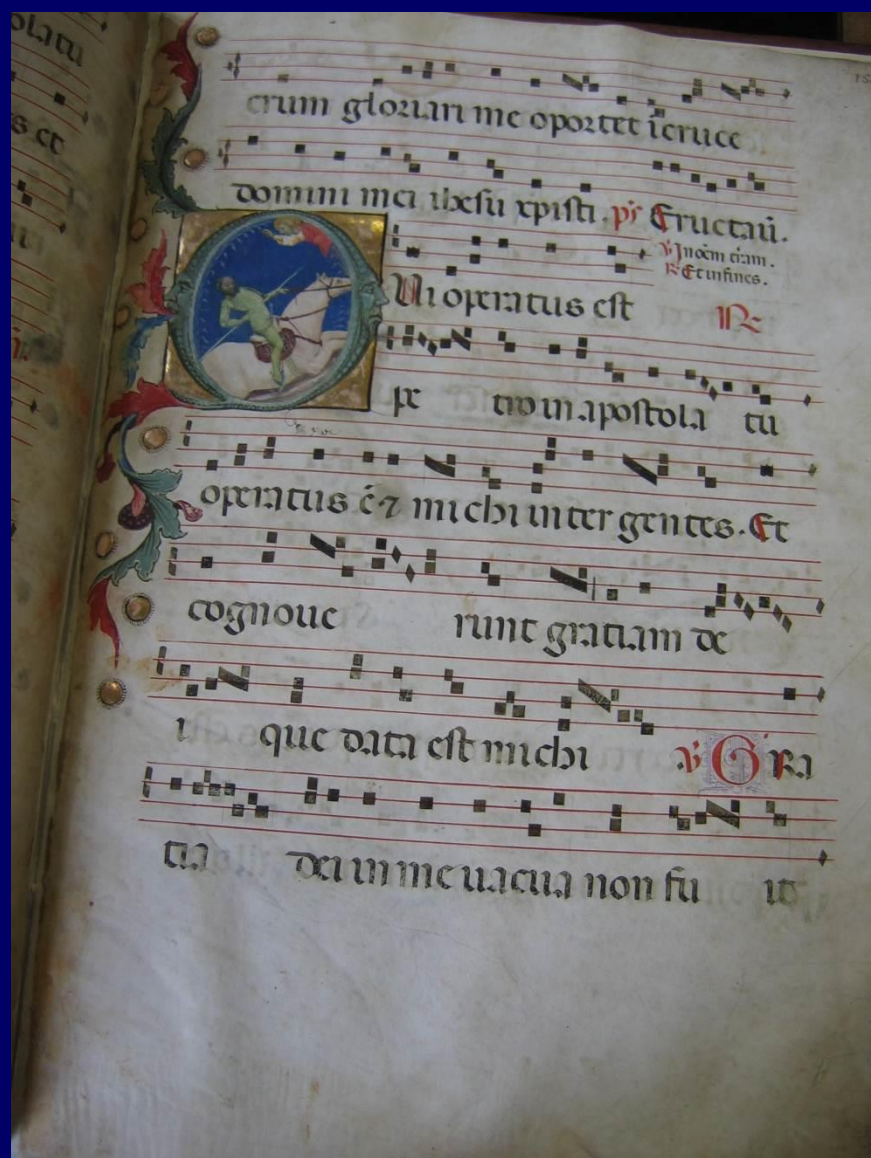 crum gloriari me oportet i cruce
domini mei ihesu xpisti. ps Eructauit.
V In oem tram.
R Et in fines.
Ui operatus est R
pe tro in apostola tu
operatus e & michi inter gentes. Et
cognoue runt gratiam de
i que data est michi V Gra
tia dei in me uacua non fu it